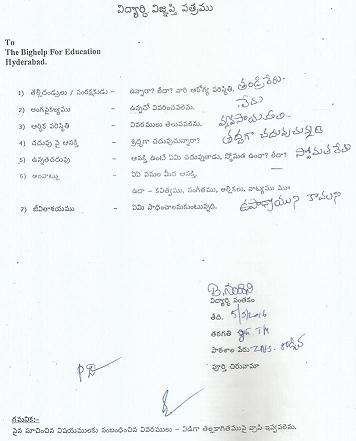 విద్యార్థి విజ్ఞప్తి పత్రము
To
The Bighelp For Education
Hyderabad.
1) తల్లిదండ్రులు / సంరక్షకుడు – ఉన్నారా? లేదా? వారి ఆరోగ్య పరిస్థితి, తండ్రి లేరు.
2) అంగవైకల్యము – ఉన్నచో వివరించవలెను. లేదు
3) ఆర్థిక పరిస్థితి – వివరములు తెలుపవలెను. వ్యవసాయ
4) చదువు పై ఆసక్తి – శ్రద్ధగా చదువుచున్నారా? చదువుచున్న
5) ఉన్నతచదువు – ఆసక్తి ఉంటే ఏమి చదువుతాడు, స్తోమత ఉందా? లేదా? స్తోమత లేదు
6) అలవాట్లు – ఏఏ పనుల మీద ఆసక్తి.
ఉదా – కవిత్వము, సంగీతము, అల్లికలు, నాట్యము
7) జీవితాశయము – ఏమి సాధించాలనుకుంటున్నది. కావాలని
విద్యార్థి సంతకం
తేది. 5/5/2016
తరగతి
పాఠశాల పేరు ZPHS.
పూర్తి చిరునామా
గమనిక:-
పైన సూచించిన విషయములకు సంబంధించిన వివరములు – విడిగా తెల్లకాగితముపై వ్రాసి ఇవ్వవలెను.